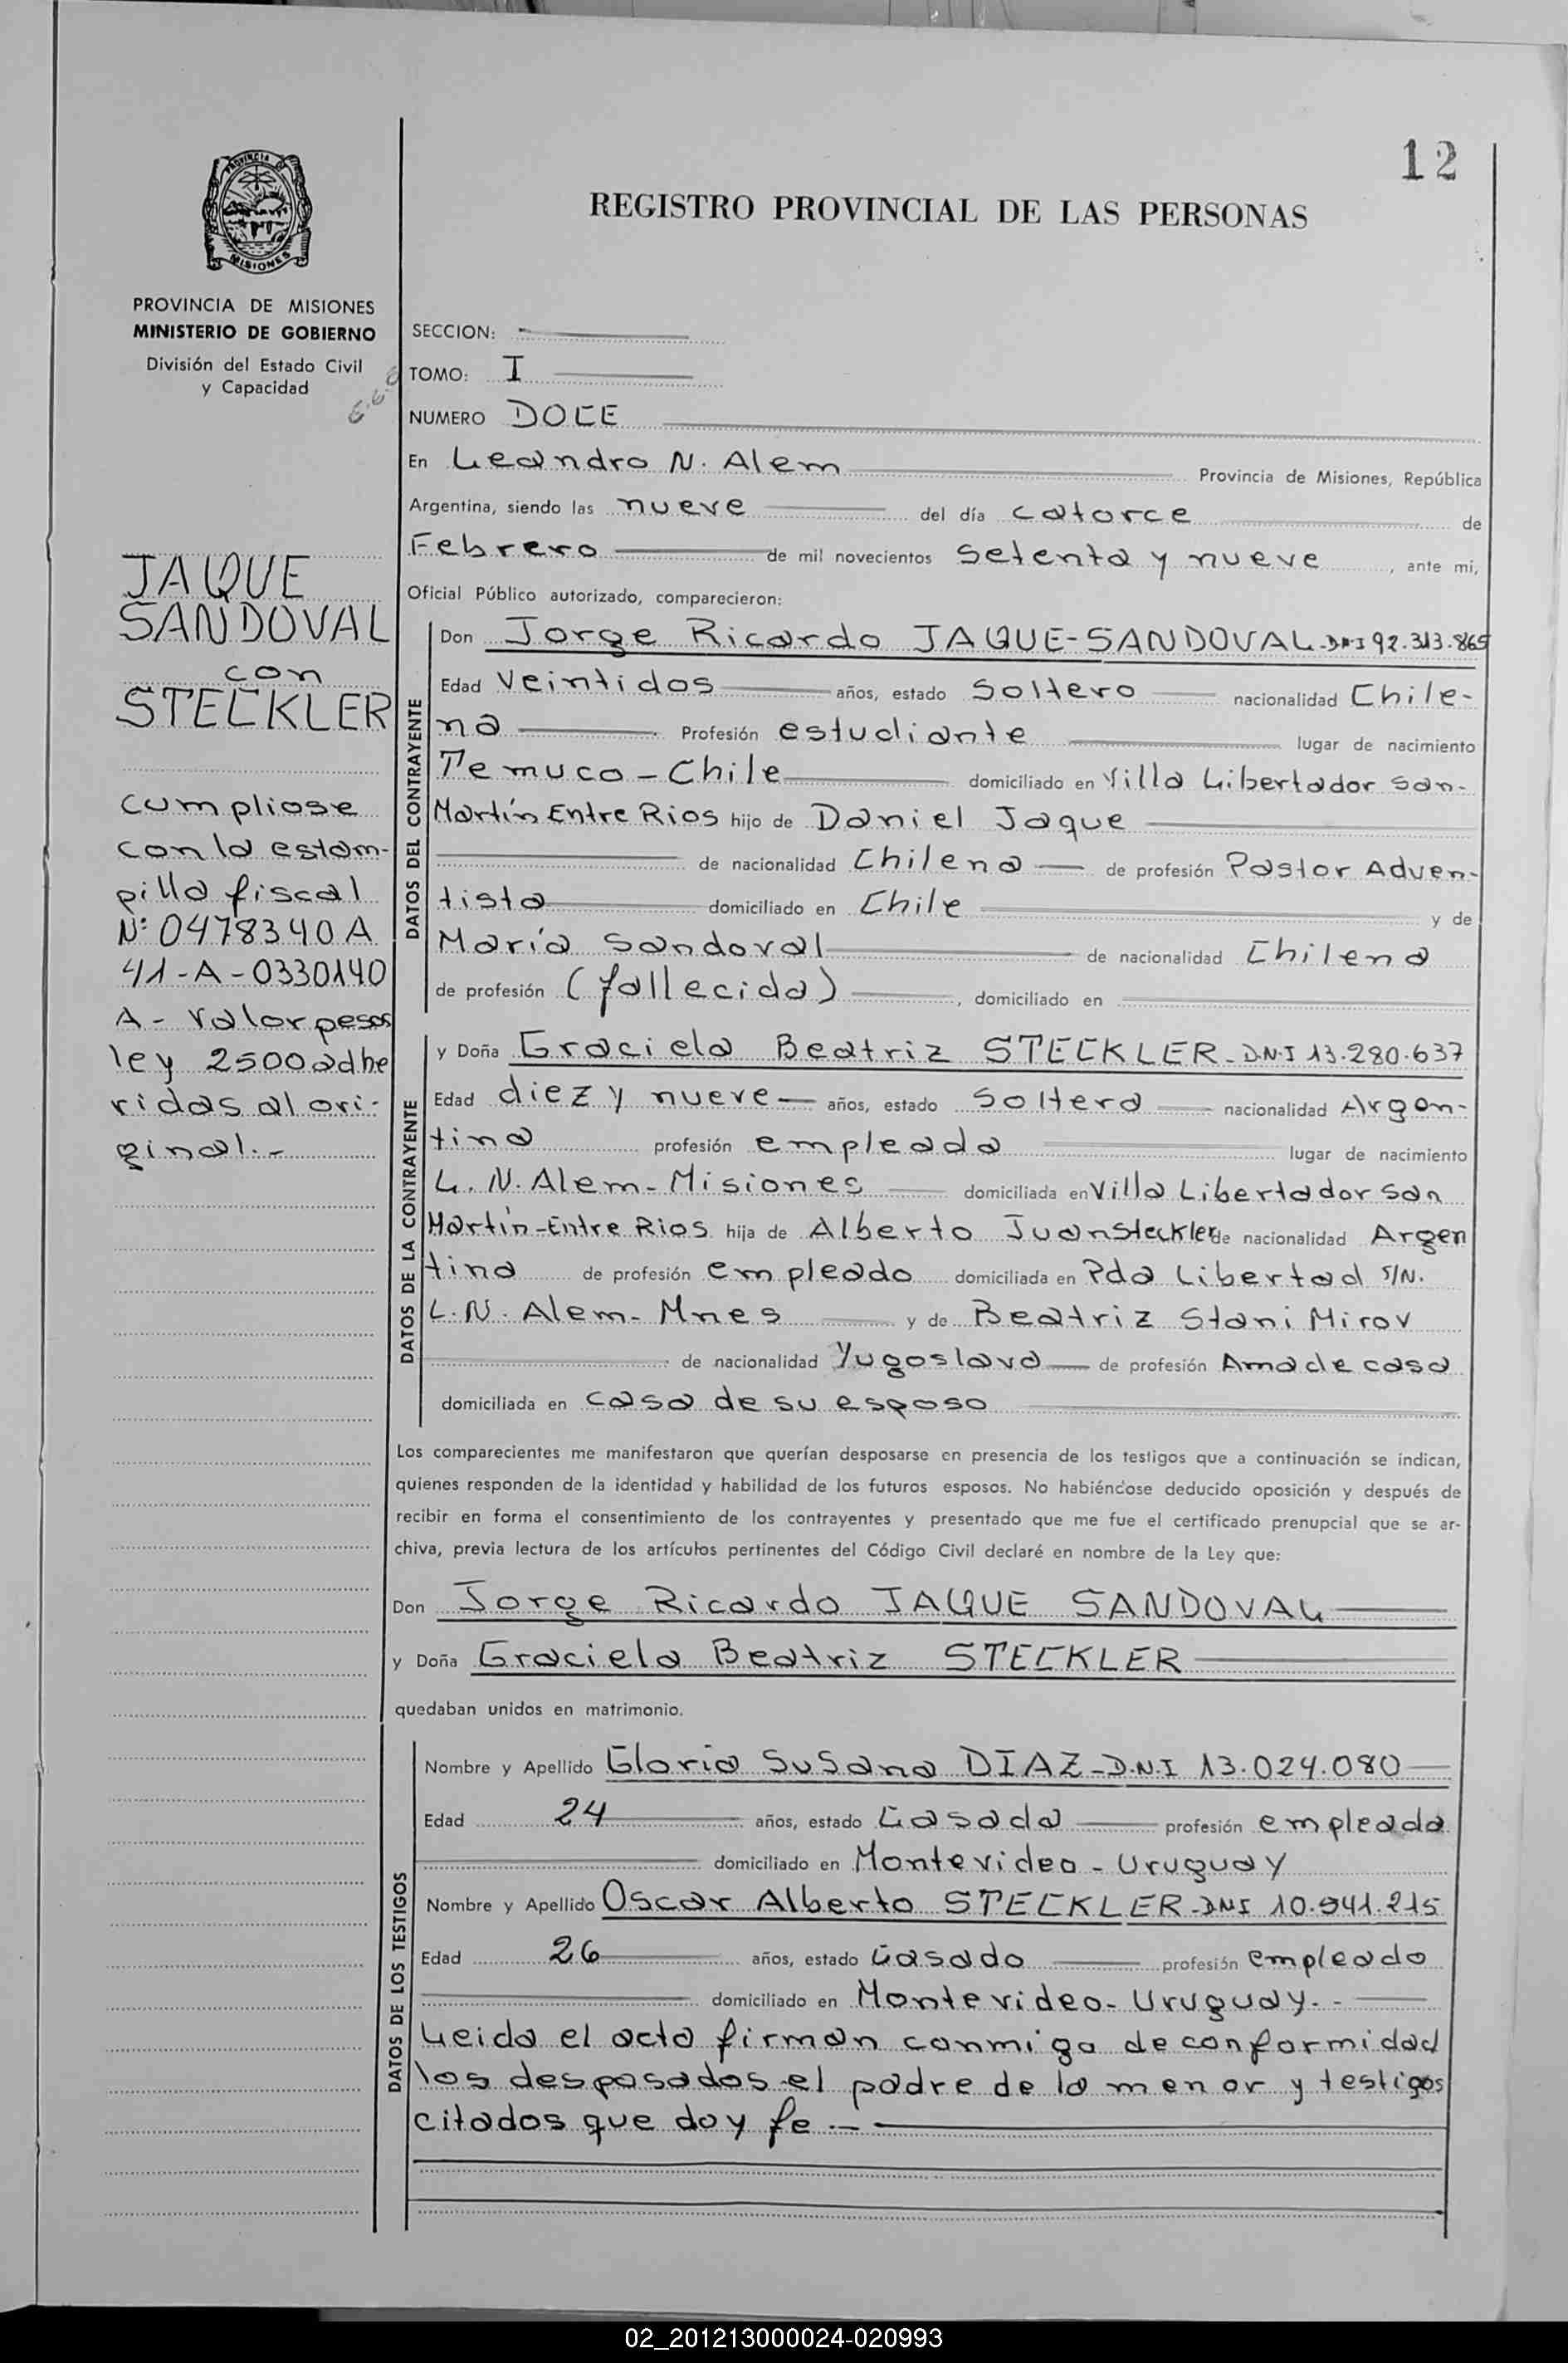 12
REGISTRO PROVINCIAL DE LAS PERSONAS
PROVINCIA DE MISIONES
PROVINCIA DE MISIONES
MINISTERIO DE GOBIERNO
División del Estado Civil
y Capacidad
JAQUE
SANDOVAL
con
STECKLER
cumpliose
con la estam-
pilla fiscal
Nº 0478340 A
41-A-0330140
A - Valor pesos
ley 2500 adhe
ridas al ori-
ginal.-
SECCION:
TOMO: I
NUMERO DOCE
En Leandro N. Alem Provincia de Misiones, República
Argentina, siendo las nueve del día catorce de
Febrero de mil novecientos setenta y nueve, ante mi,
Oficial Público autorizado, comparecieron:
DATOS DEL CONTRAYENTE
Don Jorge Ricardo JAQUE-SANDOVAL-DNI 92.313.865
Edad Veintidos años, estado Soltero nacionalidad Chile-
na Profesión estudiante lugar de nacimiento
Temuco - Chile domiciliado en Villa Libertador san-
Martín Entre Rios hijo de Daniel Jaque
de nacionalidad Chilena de profesión Pastor Adven-
tista domiciliado en Chile y de
María Sandoval de nacionalidad Chilena
de profesión (fallecida), domiciliado en
DATOS DE LA CONTRAYENTE
y Doña Graciela Beatriz STECKLER-D.N.I 13.280.637
Edad diez y nueve años, estado Soltera nacionalidad Argen-
tina profesión empleada lugar de nacimiento
L. N. Alem - Misiones domiciliada en Villa Libertador san
Martín-Entre Rios hija de Alberto Juan Steckler de nacionalidad Argen
tina de profesión empleado domiciliada en Pda Libertad S/N.
L. N. Alem - Mnes y de Beatriz Stani Mirov
de nacionalidad Yugoslava de profesión Ama de casa
domiciliada en casa de su esposo
Los comparecientes me manifestaron que querían desposarse en presencia de los testigos que a continuación se indican,
quienes responden de la identidad y habilidad de los futuros esposos. No habiéndose deducido oposición y después de
recibir en forma el consentimiento de los contrayentes y presentado que me fue el certificado prenupcial que se ar-
chiva, previa lectura de los artículos pertinentes del Código Civil declaré en nombre de la Ley que:
Don Jorge Ricardo JAQUE SANDOVAL
y Doña Graciela Beatriz STECKLER
quedaban unidos en matrimonio.
DATOS DE LOS TESTIGOS
Nombre y Apellido Gloria Susana DIAZ-D.N.I 13.024.080
Edad 24 años, estado Casada profesión empleada
domiciliado en Montevideo - Uruguay
Nombre y Apellido Oscar Alberto STECKLER-DNI 10.941.215
Edad 26 años, estado Casado profesión empleado
domiciliado en Montevideo - Uruguay.-
Leida el acta firman conmigo de conformidad
los desposados el padre de la menor y testigos
citados que doy fe.-
02_201213000024-020993